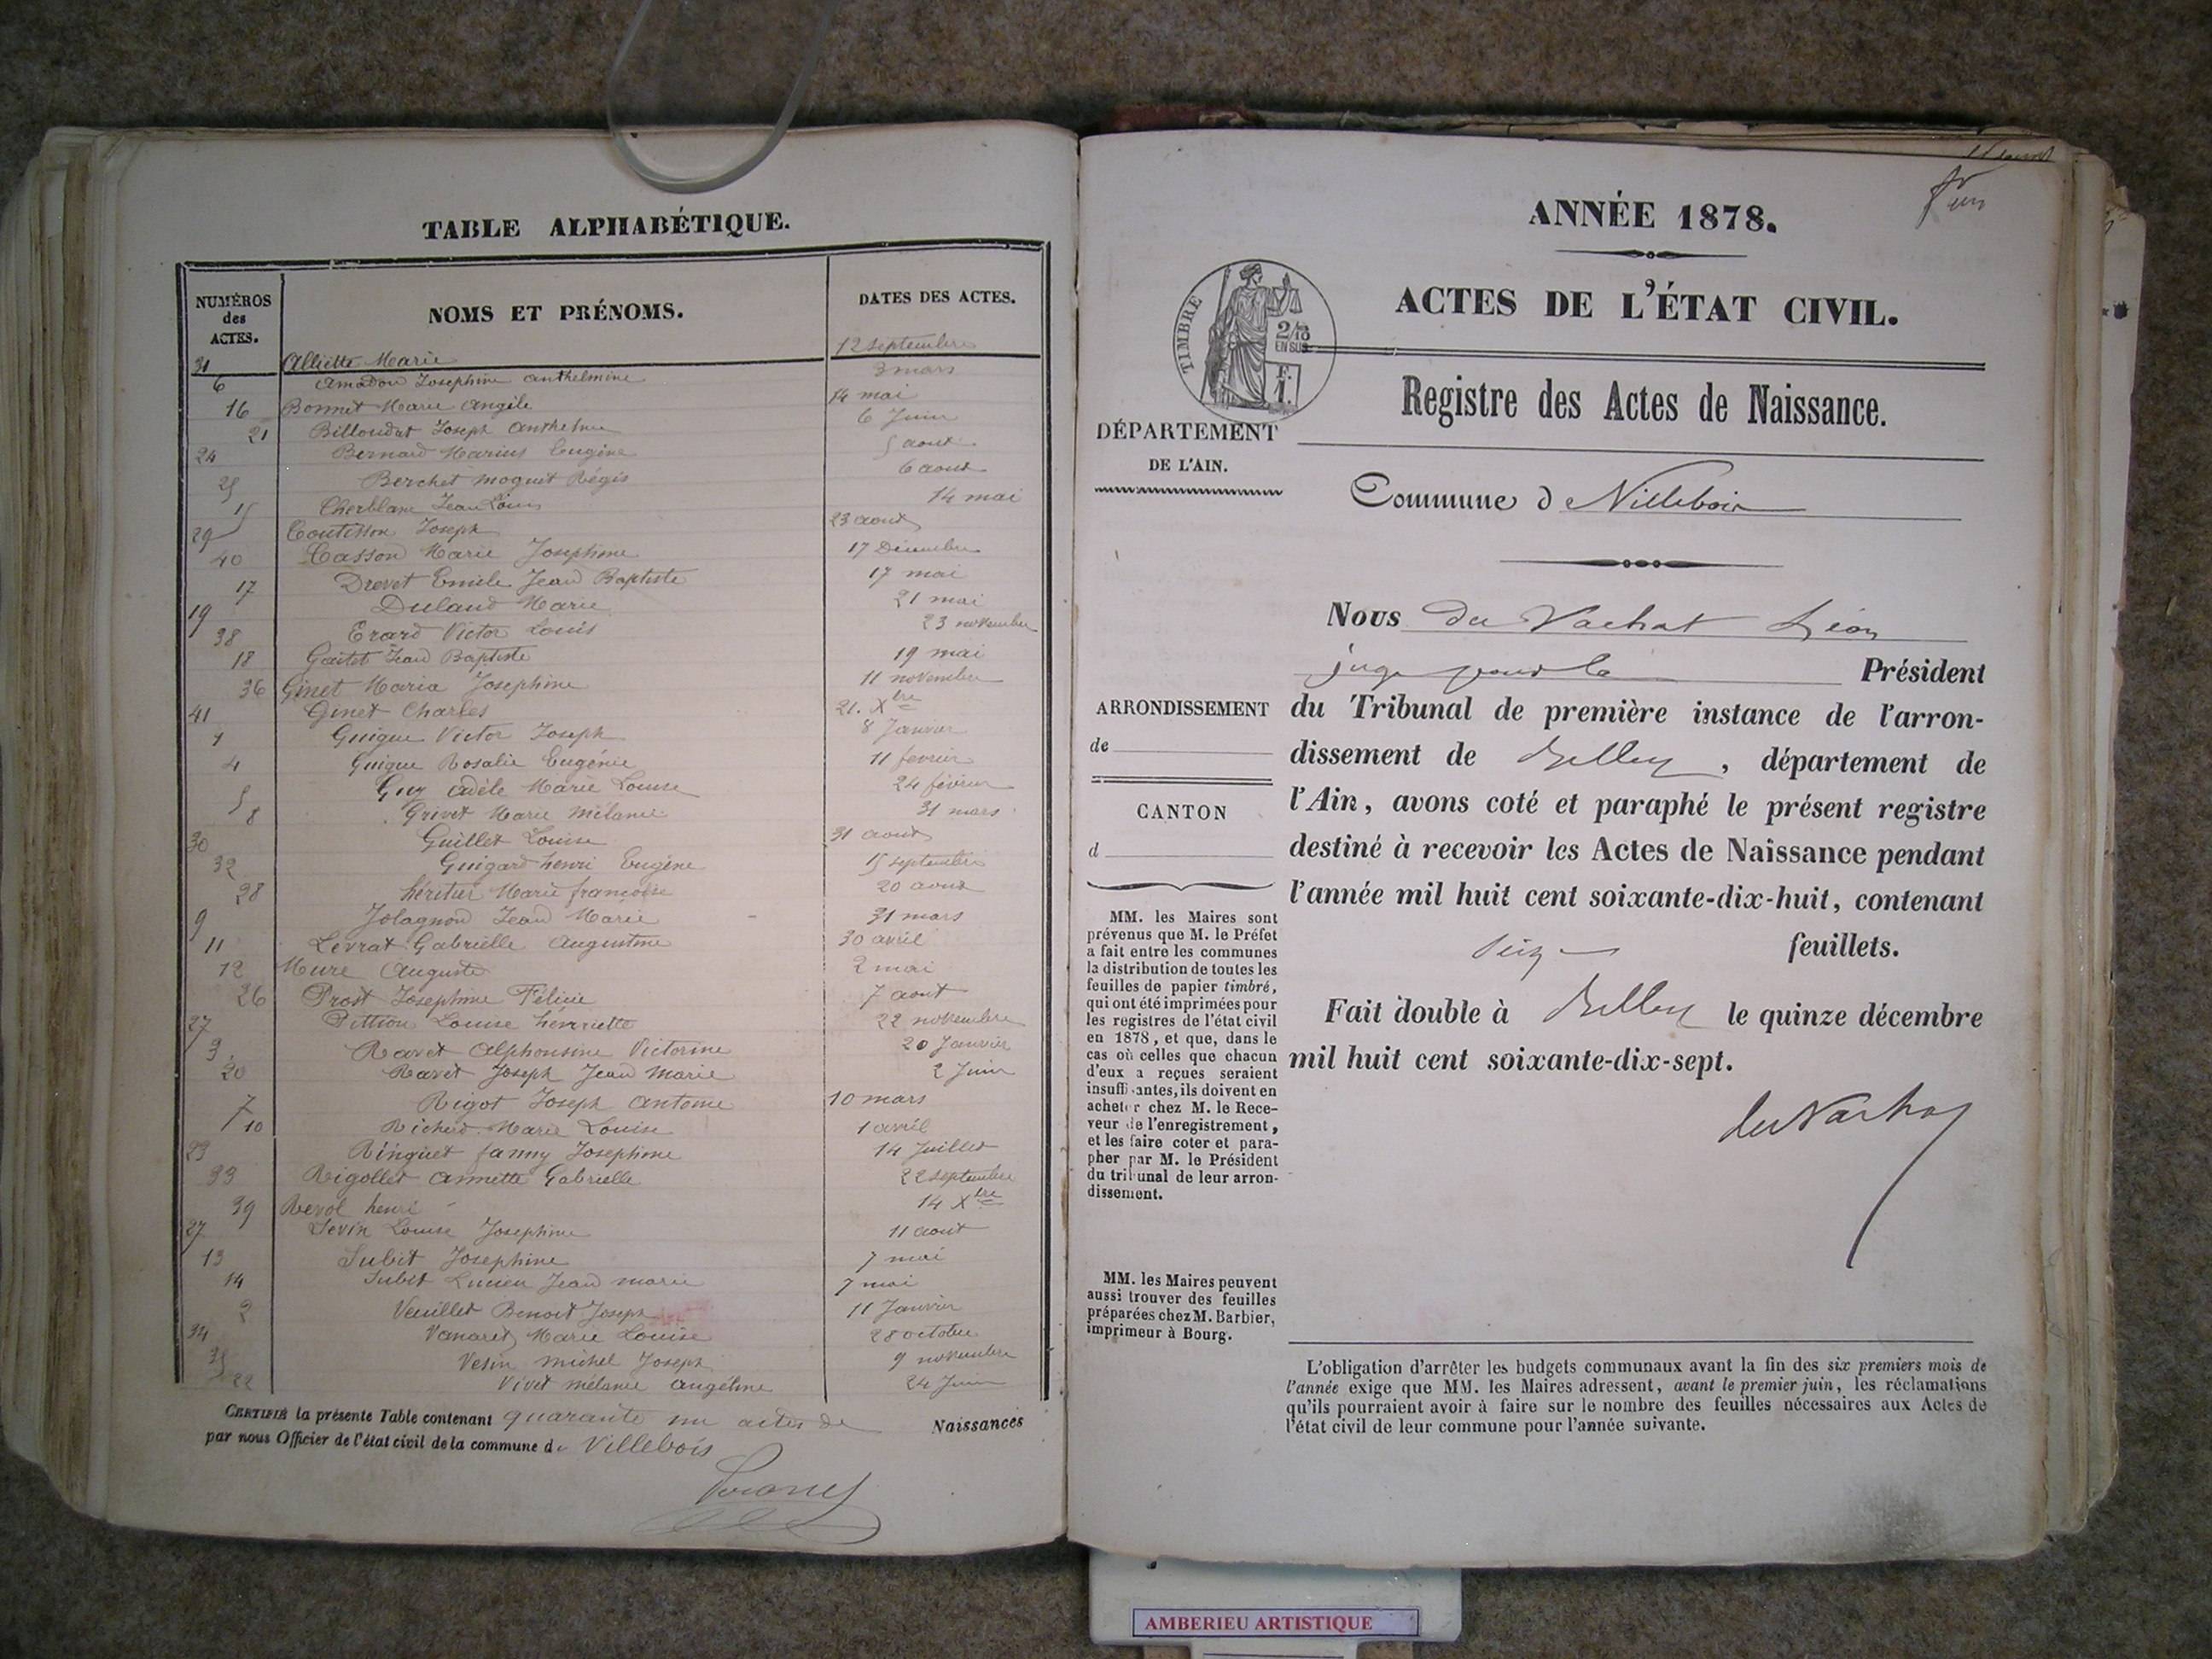 TABLE ALPHABÉTIQUE.
NUMÉROS des ACTES.
NOMS ET PRÉNOMS.
DATES DES ACTES.
31 Alliette Marie 12 septembre
6 Amadon Josephine Anthelmine 3 mars
16 Bonnet Marie Angèle 14 mai
21 Billoudet Joseph Anthelme 6 Juin
24 Bernard Marius Eugène 5 aout
25 Berchet moquit Régis 6 aout
15 Cherblanc Jean Louis 14 mai
29 Coutisson Joseph 23 aout
40 Casson Marie Josephine 17 Décembre
17 Drevet Emile Jean Baptiste 17 mai
19 Duland Marie 21 mai
38 Erard Victor Louis 23 novembre
18 Gaitet Jean Baptiste 19 mai
36 Ginet Maria Josephine 11 novembre
41 Ginet Charles 21. Xbre
1 Guigue Victor Joseph 8 Janvier
4 Guigue Rosalie Eugénie 11 fevrier
5 Guy Adèle Marie Louise 24 février
8 Grivet Marie Mélanie 31 mars
30 Guillet Louise 31 aout
32 Guigard henri Eugène 15 septembre
28 héritier Marie françoise 20 aout
9 Jolagnon Jean Marie 31 mars
11 Levrat Gabrielle Augustine 30 avril
12 Mure Auguste 2 mai
26 Prost Josephine Félicie 7 aout
37 Pittion Louise henriette 22 novembre
3 Ravet Alphonsine Victorine 20 Janvier
20 Ravet Joseph Jean Marie 2 Juin
7 Rigot Joseph Antoine 10 mars
10 Richerd Marie Louise 1 avril
23 Ringuet fanny Josephine 14 Juillet
33 Rigollet Annette Gabrielle 22 septembre
39 Revol henri 14 Xbre
27 Sevin Louise Josephine 11 aout
13 Subit Josephine 7 mai
14 Subit Lucien Jean marie 7 mai
2 Veuillet Benoit Joseph 11 Janvier
34 Vanaret Marie Louise 28 octobre
35 Vesin michel Joseph 9 novembre
22 Vivet mélanie angeline 24 Juin
CERTIFIÉ la présente Table contenant quarante un actes de Naissances
par nous Officier de l'état civil de la commune de Villebois
ANNÉE 1878.
un
ACTES DE L'ÉTAT CIVIL.
TIMBRE
2/10
EN SUS
1.
Registre des Actes de Naissance.
DÉPARTEMENT
DE L'AIN.
Commune d Villebois
Nous du Vachat Léon
juge pour le Président
ARRONDISSEMENT
de
CANTON
d
du Tribunal de première instance de l'arron-
dissement de Belley, département de
l'Ain, avons coté et paraphé le présent registre
destiné à recevoir les Actes de Naissance pendant
l'année mil huit cent soixante-dix-huit, contenant
seize feuillets.
Fait double à Belley le quinze décembre
mil huit cent soixante-dix-sept.
du Vachat
MM. les Maires sont
prévenus que M. le Préfet
a fait entre les communes
la distribution de toutes les
feuilles de papier timbré,
qui ont été imprimées pour
les registres de l'état civil
en 1878, et que, dans le
cas où celles que chacun
d'eux a reçues seraient
insuffisantes, ils doivent en
acheter chez M. le Rece-
veur de l'enregistrement,
et les faire coter et para-
pher par M. le Président
du tribunal de leur arron-
dissement.
MM. les Maires peuvent
aussi trouver des feuilles
préparées chez M. Barbier,
imprimeur à Bourg.
L'obligation d'arrêter les budgets communaux avant la fin des six premiers mois de
l'année exige que MM. les Maires adressent, avant le premier juin, les réclamations
qu'ils pourraient avoir à faire sur le nombre des feuilles nécessaires aux Actes de
l'état civil de leur commune pour l'année suivante.
AMBERIEU ARTISTIQUE